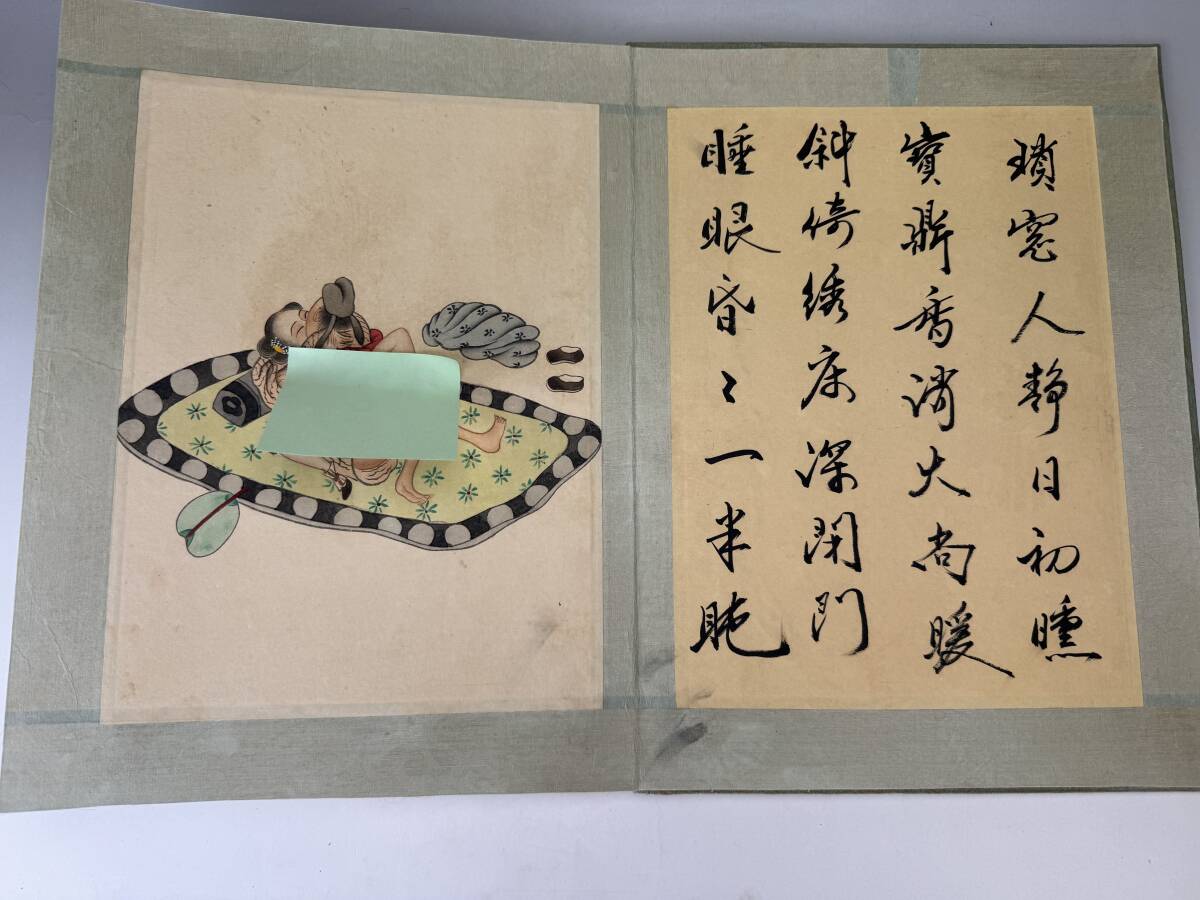 瑣窓人靜日初曛
寶鼎香消火尚暖
斜倚綉床深閉門
睡眼昏〻一半肫